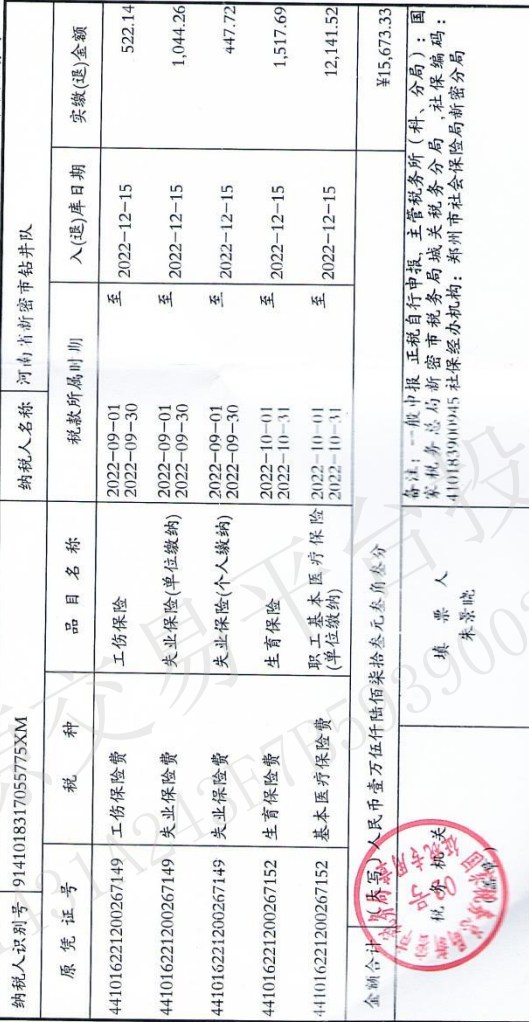 纳税人识别号 91410183170557​75XM 纳税人名称 河南省新密市钻井队
原凭证号 税种 品目名称 税款所属时期 入(退)库日期 实缴(退)金额
441016221200267149 工伤保险费 工伤保险 2022-09-01 至 2022-09-30 2022-12-15 522.14
441016221200267149 失业保险费 失业保险(单位缴纳) 2022-09-01 至 2022-09-30 2022-12-15 1,044.26
441016221200267149 失业保险费 失业保险(个人缴纳) 2022-09-01 至 2022-09-30 2022-12-15 447.72
441016221200267152 生育保险费 生育保险 2022-10-01 至 2022-10-31 2022-12-15 1,517.69
441016221200267152 基本医疗保险费 职工基本医疗保险(单位缴纳) 2022-10-01 至 2022-10-31 2022-12-15 12,141.52
金额合计 (大写)人民币壹万伍仟陆佰柒拾叁元叁角叁分 ¥15,673.33
税务机关
填票人
朱景晓
备注:一般申报 正税自行申报,主管税务所(科、分局):国
家税务总局新密市税务局城关税务分局,社保编码:
410183900945 社保经办机构:郑州市社会保险局新密分局